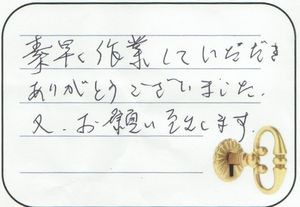 素早く作業していただき
ありがとうございました.
又、お願い致します.